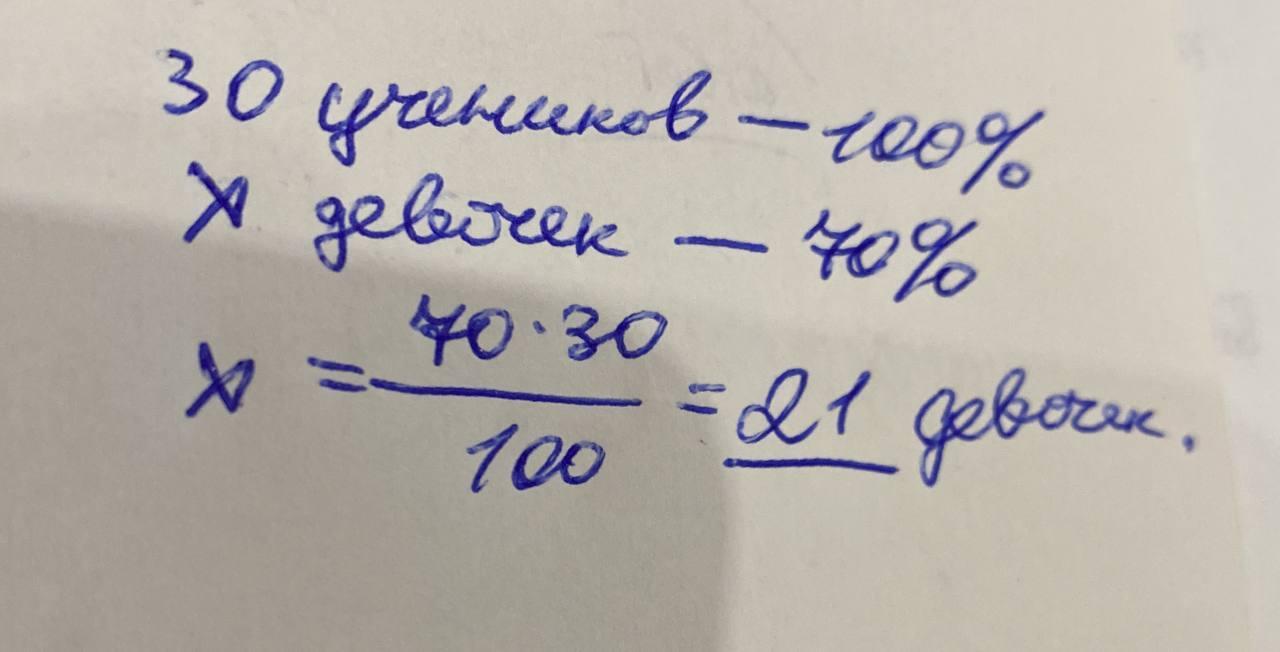 30 учеников — 100%
x девочек — 70%
x = 70·30 / 100 = 21 девочек.